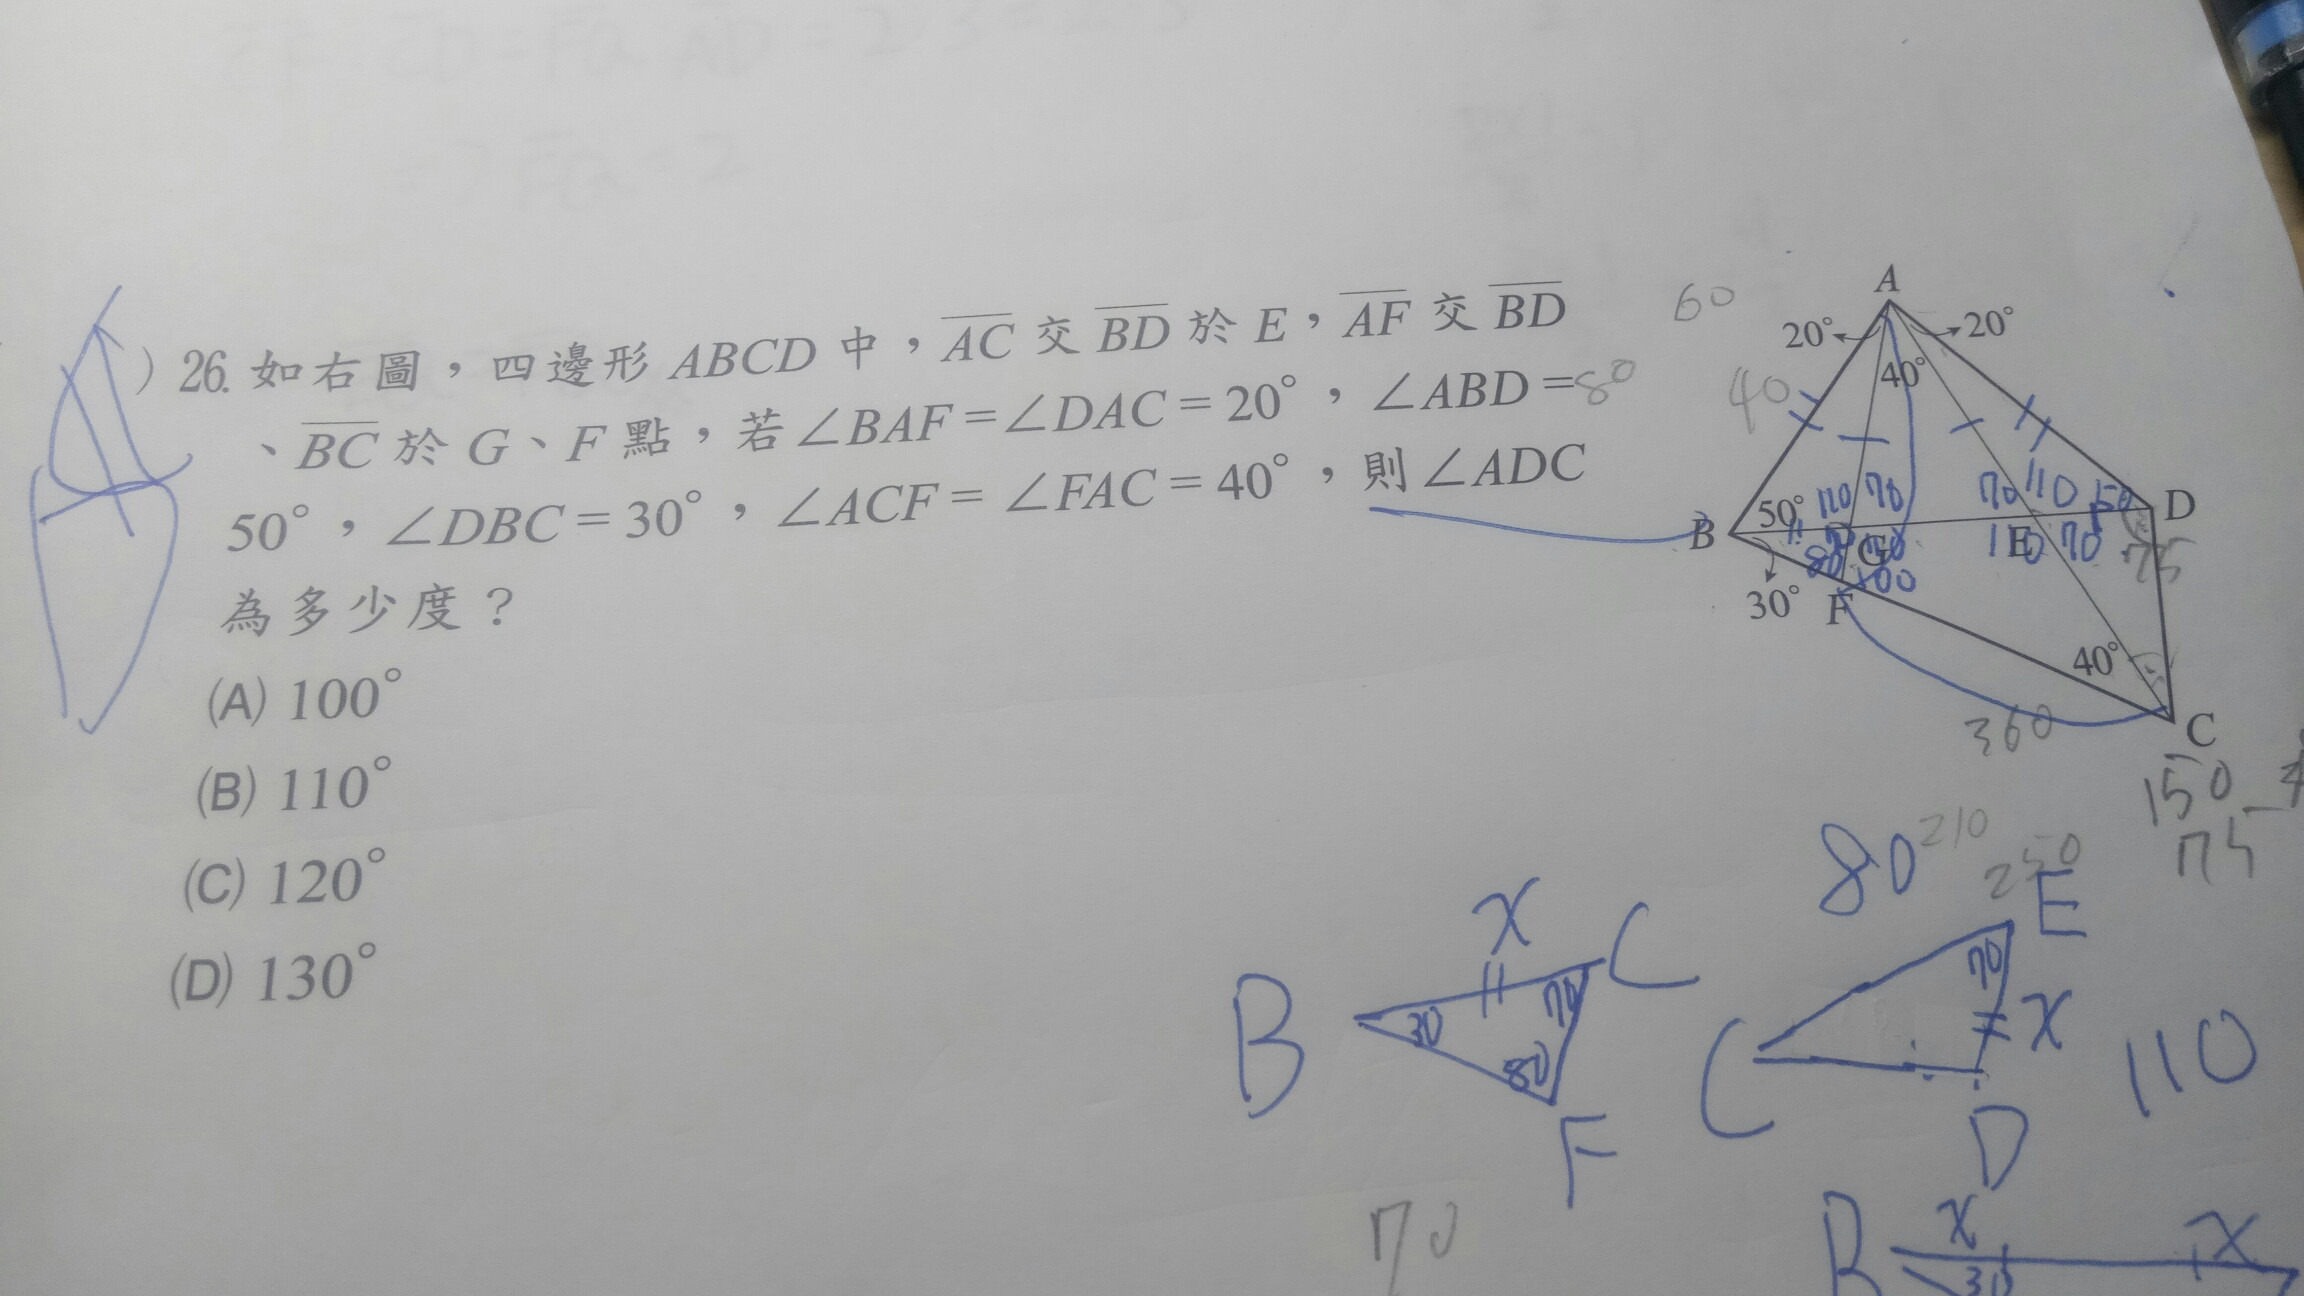 )26. 如右圖，四邊形 ABCD 中，AC 交 BD 於 E，AF 交 BD
、BC 於 G、F 點，若∠BAF＝∠DAC＝20°，∠ABD＝80
50°，∠DBC＝30°，∠ACF＝∠FAC＝40°，則∠ADC
為多少度？
(A) 100°
(B) 110°
(C) 120°
(D) 130°
60
A
20°
20°
40
40°
B
50°
110
70
70
110
150
D
80
G
100
110
E
70
75
30°
F
40°
C
360
150
75
80
210
250
E
x
C
B
30
70
80
F
70
x
C
D
110
70
B
x
x
30